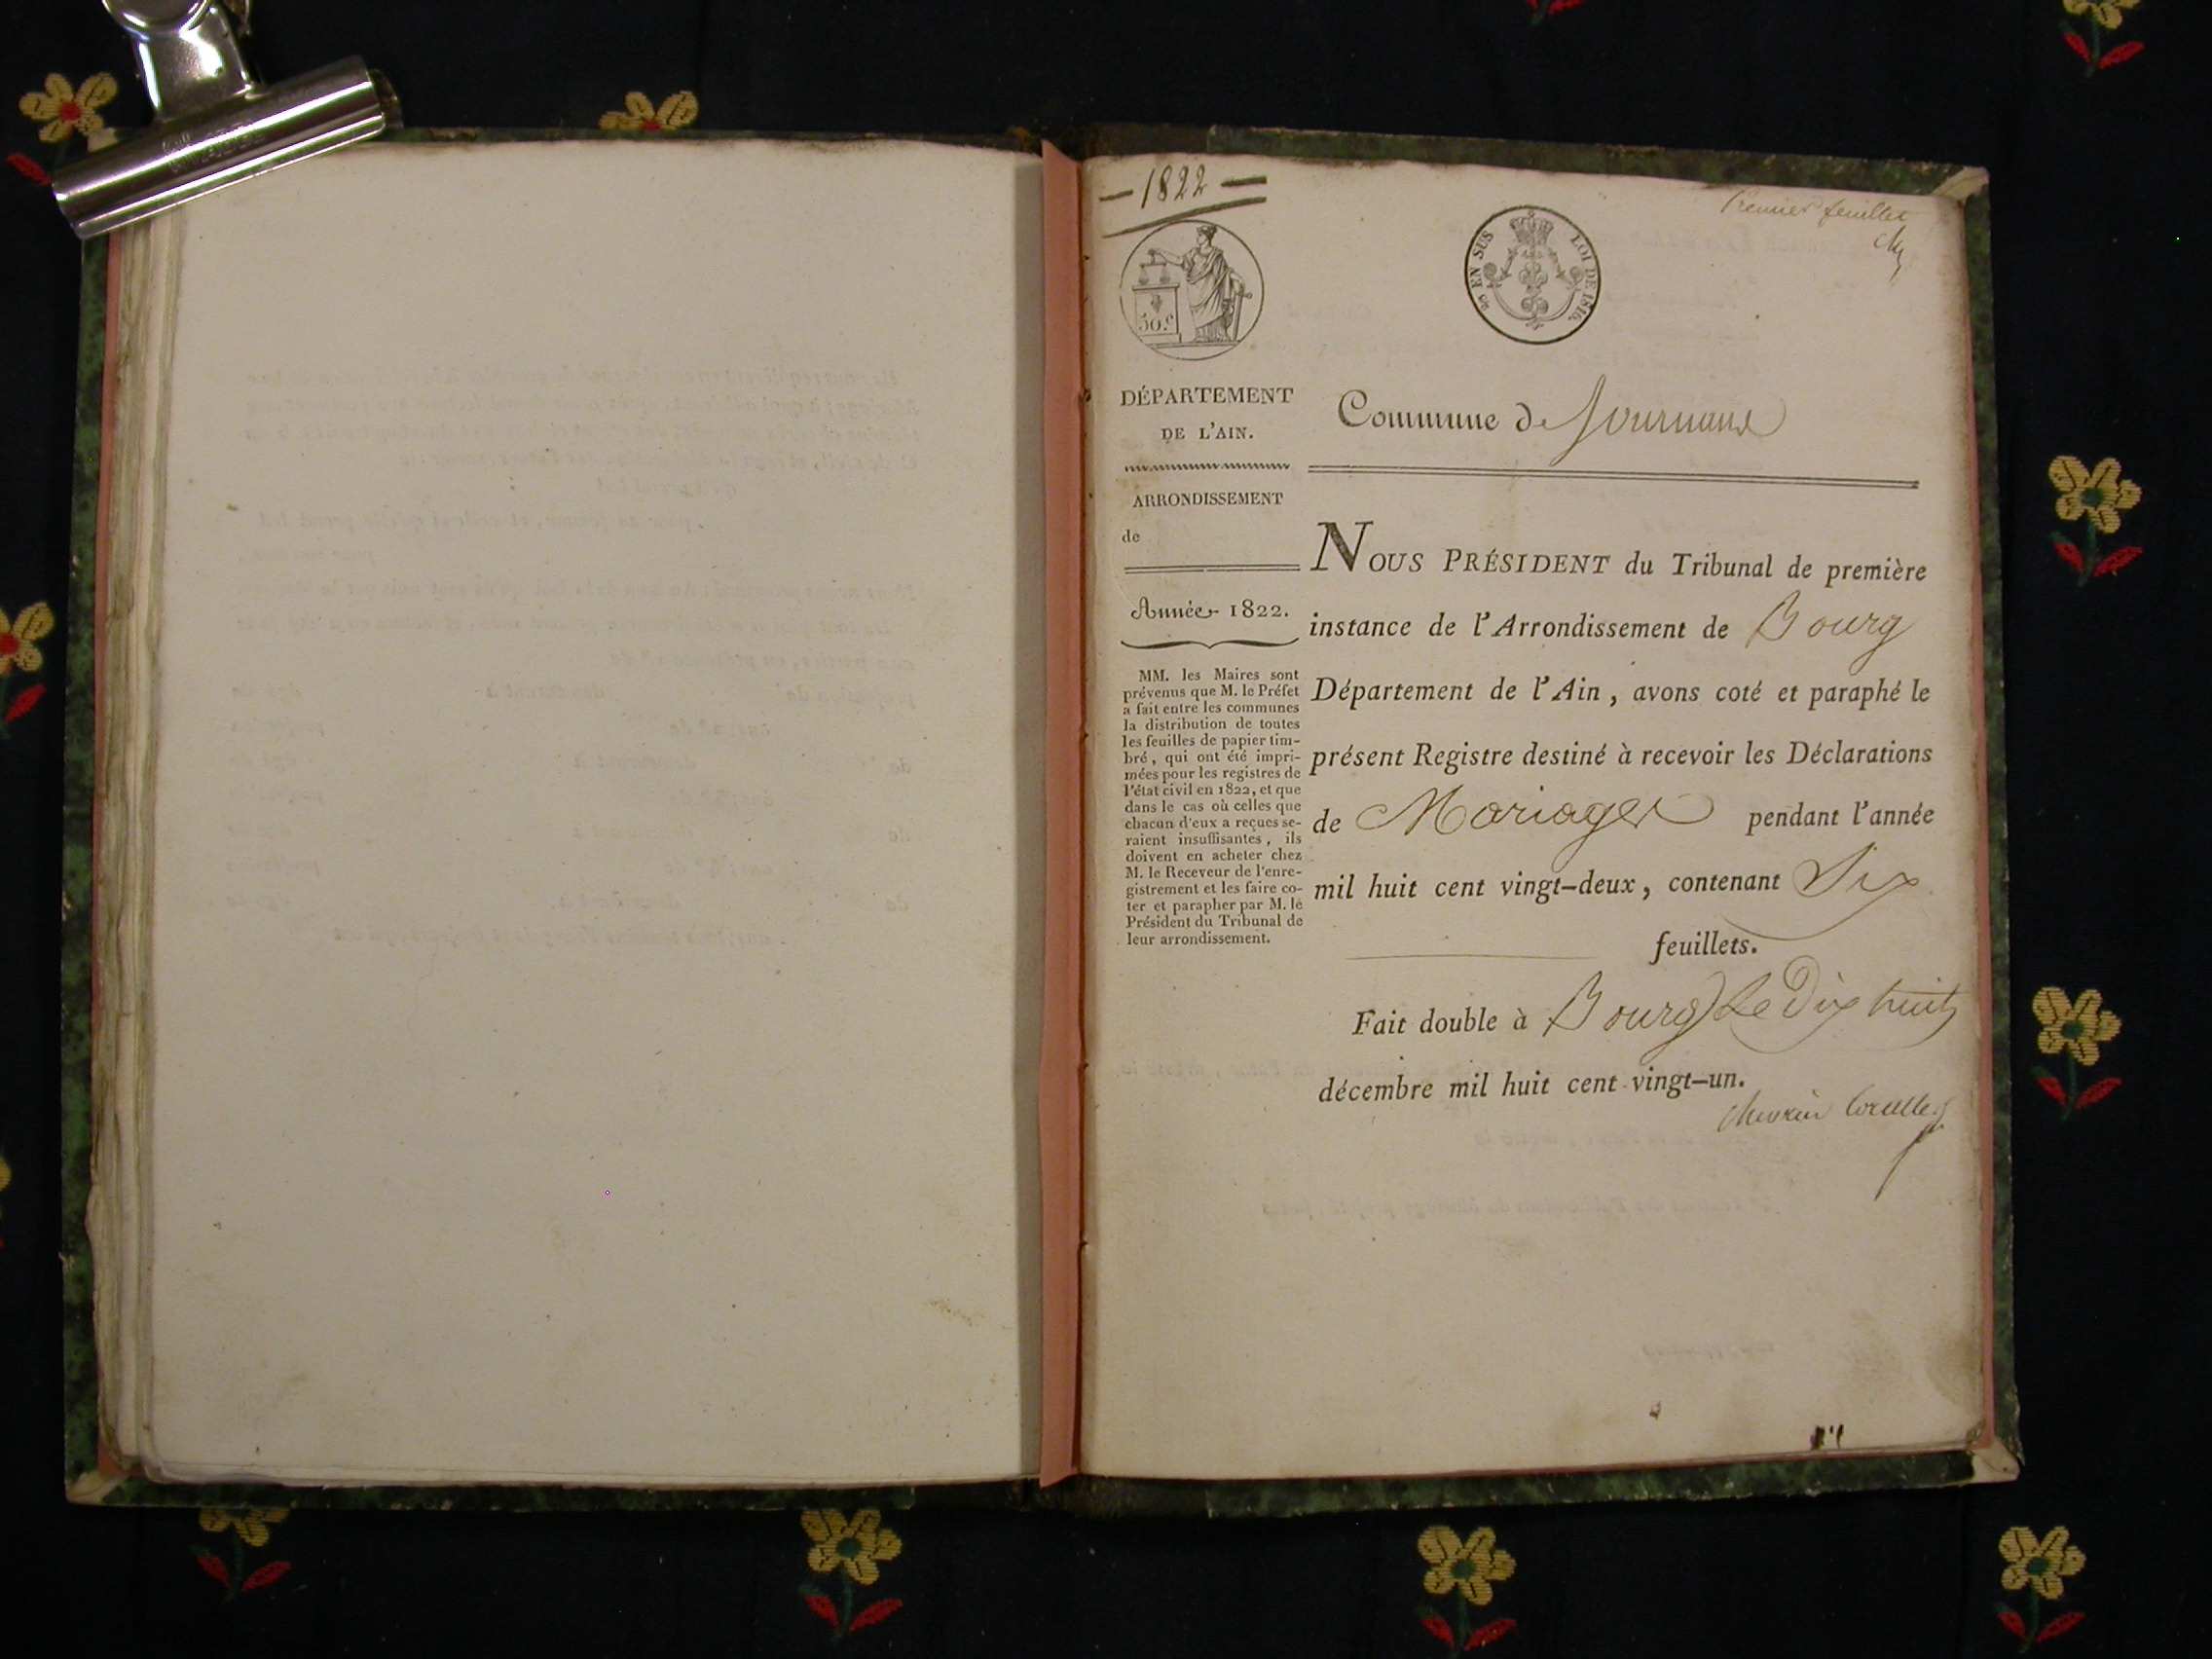 — 1822 —
Premier feuillet
EN SUS LOI DE 1816.
50.c
DÉPARTEMENT
DE L'AIN.
Commune de Journans
ARRONDISSEMENT
de
Année 1822.
MM. les Maires sont
prévenus que M. le Préfet
a fait entre les communes
la distribution de toutes
les feuilles de papier tim-
bré, qui ont été impri-
mées pour les registres de
l'état civil en 1822, et que
dans le cas où celles que
chacun d'eux a reçues se-
raient insuffisantes, ils
doivent en acheter chez
M. le Receveur de l'enre-
gistrement et les faire co-
ter et parapher par M. le
Président du Tribunal de
leur arrondissement.
NOUS PRÉSIDENT du Tribunal de première
instance de l'Arrondissement de Bourg
Département de l'Ain, avons coté et paraphé le
présent Registre destiné à recevoir les Déclarations
de Mariages pendant l'année
mil huit cent vingt-deux, contenant Six
feuillets.
Fait double à Bourg Le Dix huit
décembre mil huit cent vingt-un.